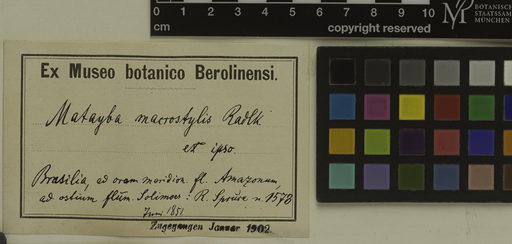 0 1 2 3 4 5 6 7 8 9 10
cm
copyright reserved
BOTANISCH
STAATSSAM
MÜNCHEN
Ex Museo botanico Berolinensi.
Matayba macrostylis Radlk
ex ipso.
Brasilia, ad oram meridion. fl. Amazonum,
ad ostium flum. Solimoes: R. Spruce n. 1578
Juni 1851
Zugegangen Januar 1902.